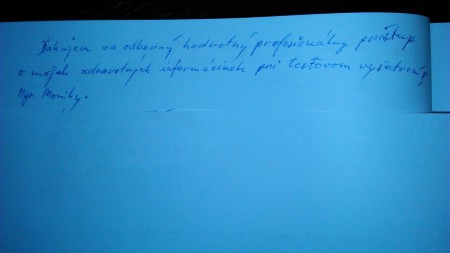 Ďakujem za odborný hodnotný profesionálny prístup
o mojich zdravotných informáciách pri testovom vyšetrení
Mgr. Moniky.